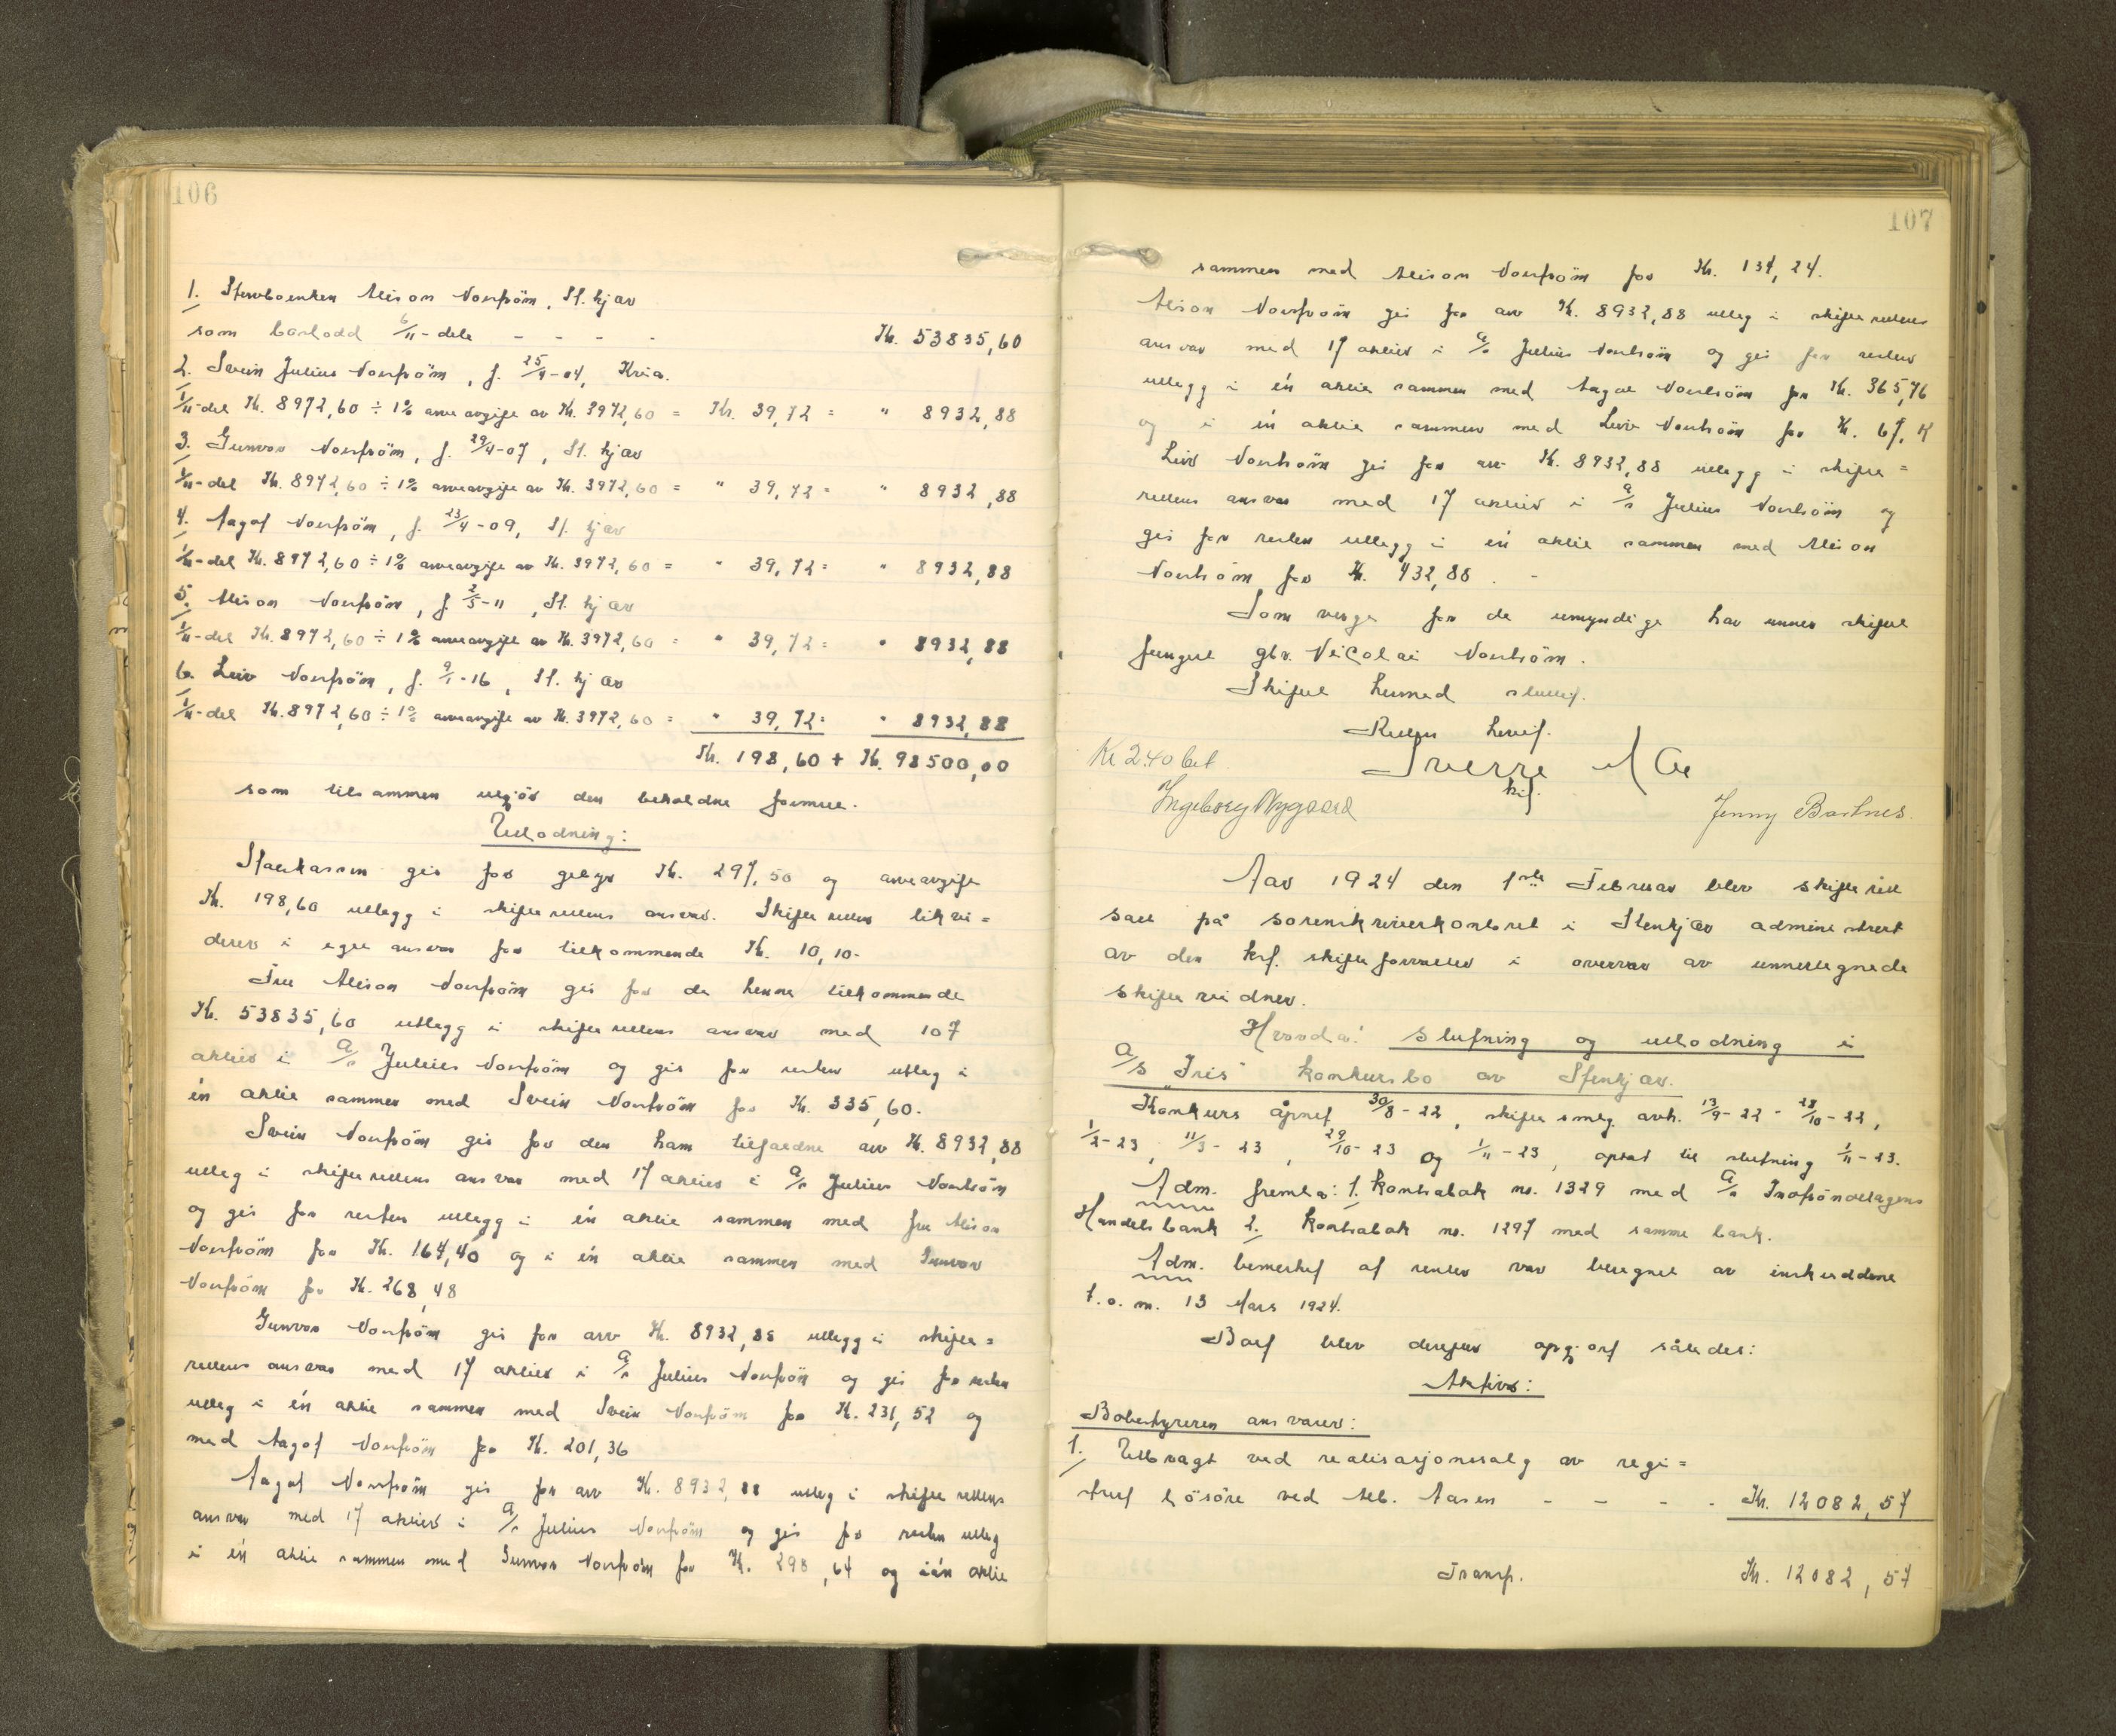 106
1. Stervboenken Alison Vonstrøm, St.kjær
som boslodd 6/11-dele - - - - Kr. 53835,60
2. Svein Julius Vonstrøm, f. 25/4-04, Kvia.
1/11-del Kr. 8972,60 ÷ 1% arveavgift av Kr. 3972,60 = Kr. 39,72 = " 8932,88
3. Gunvor Vonstrøm, f. 29/4-07, St.kjær
1/11-del Kr. 8972,60 ÷ 1% arveavgift av Kr. 3972,60 = " 39,72 = " 8932,88
4. Aagot Vonstrøm, f. 23/4-09, St.kjær
1/11-del Kr. 8972,60 ÷ 1% arveavgift av Kr. 3972,60 = " 39,72 = " 8932,88
5. Alison Vonstrøm, f. 2/5-11, St.kjær
1/11-del Kr. 8972,60 ÷ 1% arveavgift av Kr. 3972,60 = " 39,72 = " 8932,88
6. Leiv Vonstrøm, f. 9/1-16, St.kjær
1/11-del Kr. 8972,60 ÷ 1% arveavgift av Kr. 3972,60 = " 39,72 = " 8932,88
Kr. 198,60 + Kr. 98500,00
som tilsammen utgjør den beholdne formue.
Utlodning:
Statskassen gis for gebyr Kr. 297,50 og arveavgift
Kr. 198,60 utlegg i skifterettens ansvar. Skifteretten likvi=
derer i eget ansvar for tilkommende Kr. 10,10.
Fru Alison Vonstrøm gis for de henne tilkommende
Kr. 53835,60 utlegg i skifterettens ansvar med 107
aktier i A/s Julius Vonstrøm og gis for resten utleg i
én aktie sammen med Svein Vonstrøm for Kr. 335,60.
Svein Vonstrøm gis for den ham tilfaldne arv Kr. 8932,88
utleg i skifterettens ansvar med 17 aktier i A/s Julius Vonstrøm
og gis for resten utlegg i én aktie sammen med fru Alison
Vonstrøm for Kr. 164,40 og i én aktie sammen med Gunvor
Vonstrøm for Kr. 268,48
Gunvor Vonstrøm gis for arv Kr. 8932,88 utlegg i skifte=
rettens ansvar med 17 aktier i A/s Julius Vonstrøm og gis for resten
utleg i én aktie sammen med Svein Vonstrøm for Kr. 231,52 og
med Aagot Vonstrøm for Kr. 201,36
Aagot Vonstrøm gis for arv Kr. 8932,88 utleg i skifterettens
ansvar med 17 aktier i A/s Julius Vonstrøm og gis for resten utleg
i én aktie sammen med Gunvor Vonstrøm for Kr. 298,64 og i én aktie
107
sammen med Alison Vonstrøm for Kr. 134,24.
Alison Vonstrøm gis for arv Kr. 8932,88 utleg i skifterettens
ansvar med 17 aktier i A/s Julius Vonstrøm og gis for resten
utlegg i én aktie sammen med Aagot Vonstrøm for Kr. 365,76
og i én aktie sammen med Leiv Vonstrøm for Kr. 67,
Leiv Vonstrøm gis for arv Kr. 8932,88 utlegg i skifte=
rettens ansvar med 17 aktier i A/s Julius Vonstrøm og
gis for resten utlegg i én aktie sammen med Alison
Vonstrøm for Kr. 432,88. -
Som verge for de umyndige har under skiftet
fungert gbr. Nicolai Vonstrøm.
Skiftet hermed sluttet.
Retten hevet.
Kr 2.40 bet
Sverre
kst.
Ingeborg Nygaard
Jenny Bartnes.
Aar 1924 den 1ste Februar blev skifterett
satt på sorenskriverkontoret i Stenkjær administrert
av den kst. skifteforvalter i overvær av undertegnede
skiftevidner.
Hvorda: Slutning og utlodning i
A/s "Iris" konkursbo av Stenkjær.
Konkurs åpnet 30/8-22, skiftesmlg. avh. 13/9-22 - 28/10-22,
1/2-23, 11/3-23, 29/10-23 og 1/11-23, optat til slutning 1/11-23.
Adm. fremla: 1. kontrabok nr. 1329 med A/s Indtrøndelagens
Handelsbank 2. kontrabok nr. 1297 med samme bank.
Adm. bemerket at renter var beregnet av inskuddene
t.o.m. 13 Mars 1924.
Boet blev derefter opgjort således:
Aktiva:
Bobestyreren ansvarer:
1. Utbragt ved realisasjonssalg av regi=
strert løsøre ved Alb. Aasen - - - - Kr. 12082,57
Transp. Kr. 12082,57